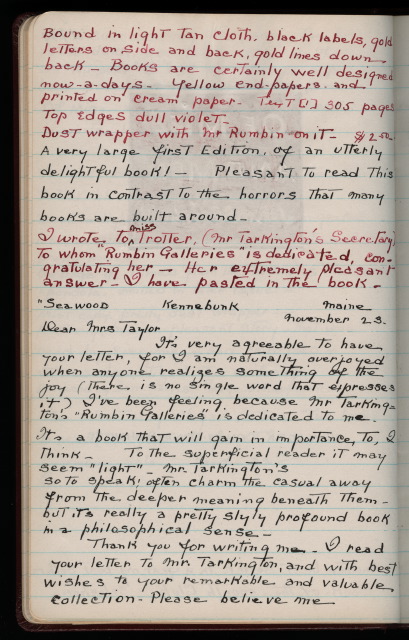 Bound in light tan cloth. black labels, gold
letters on side and back, gold lines down
back — Books are certainly well designed
now-a-days — Yellow end-papers. and
printed on cream paper — Text [1] 305 pages
Top edges dull violet —
Dust wrapper with Mr Rumbin on it — $2.50.
A very large First Edition, of an utterly
delightful book! — Pleasant to read this
book in contrast to the horrors that many
books are built around —
I wrote to Miss Trotter, (Mr Tarkington's Secretary)
To whom "Rumbin Galleries" is dedicated, con-
gratulating her — Her extremely pleasant
answer — I have pasted in the book —
"Seawood Kennebunk Maine
November 23.
Dear Mrs Taylor
It's very agreeable to have
your letter, for I am naturally overjoyed
when anyone realizes something of the
joy (there is no single word that expresses
it) I've been feeling because Mr Tarking-
ton's "Rumbin Galleries" is dedicated to me.
It's a book that will gain in importance, to, I
think — To the superficial reader it may
seem "light" — Mr. Tarkington's
so to speak, often charm the casual away
from the deeper meaning beneath them —
but it's really a pretty slyly profound book
in a philosophical sense —
Thank you for writing me — I read
your letter to Mr. Tarkington, and with best
wishes to your remarkable and valuable
collection — Please believe me